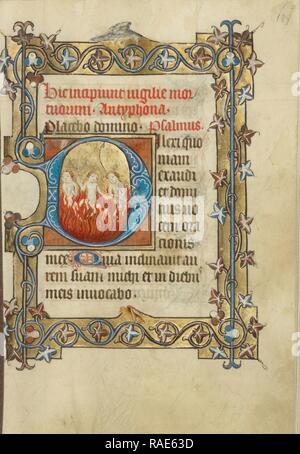 Hic incipiunt vigilie mor
tuorum. Antyphona.
Placebo domino. Psalmus.
ilexi quo
niam
exaudi
et domi
nus uo
cem ora
cionis
mee. Quia inclinauit au
rem suam michi et in diebus
meis inuocabo.
alamy
Image ID: RAE63D
www.alamy.com